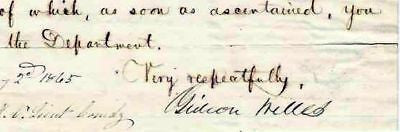 of which, as soon as ascertained, you
the Department.
2d 1865
Very respectfully,
Gideon Welles
Lieut Comdg